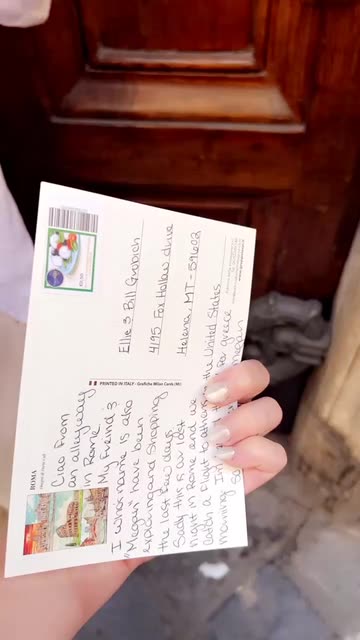 ROMA
Ciao From
an alleyway
in Rome.
My Freind 3
I whos name is also
"Megan" have been
exploring and Shopping
the last few days.
Sadly this is our last
night in Rome and we
catch a Flight to athens
greece
In
morning
So
PRINTED IN ITALY - Grafiche Milan Cards (MI)
Ellie 3 Bill Grobich
4195 Fox Hollow drive
Helena, MT - 59602
the United States